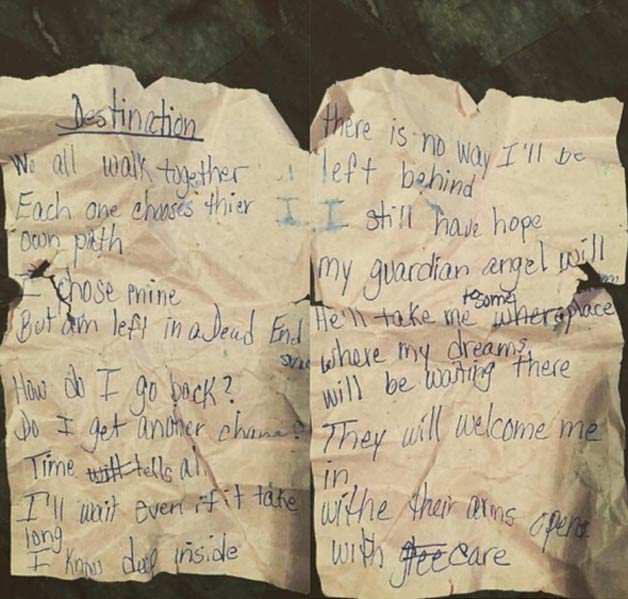 Destination
We all walk together
Each one chooses thier
own path
I chose mine
But am left in a Dead End
How do I go back?
Do I get another chance?
Time will tells all
I'll wait even if it take
long
I know deep inside
there is no way I'll be
left behind
I still have hope
my guardian angel will
He'll take me to some where place
where my dreams
will be waiting there
They will welcome me
in
withe their arms opens
with care